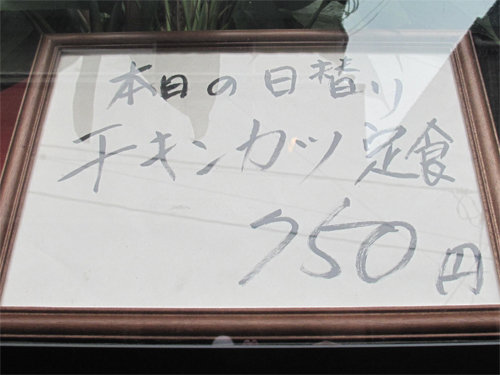 本日の日替り
チキンカツ定食
750円